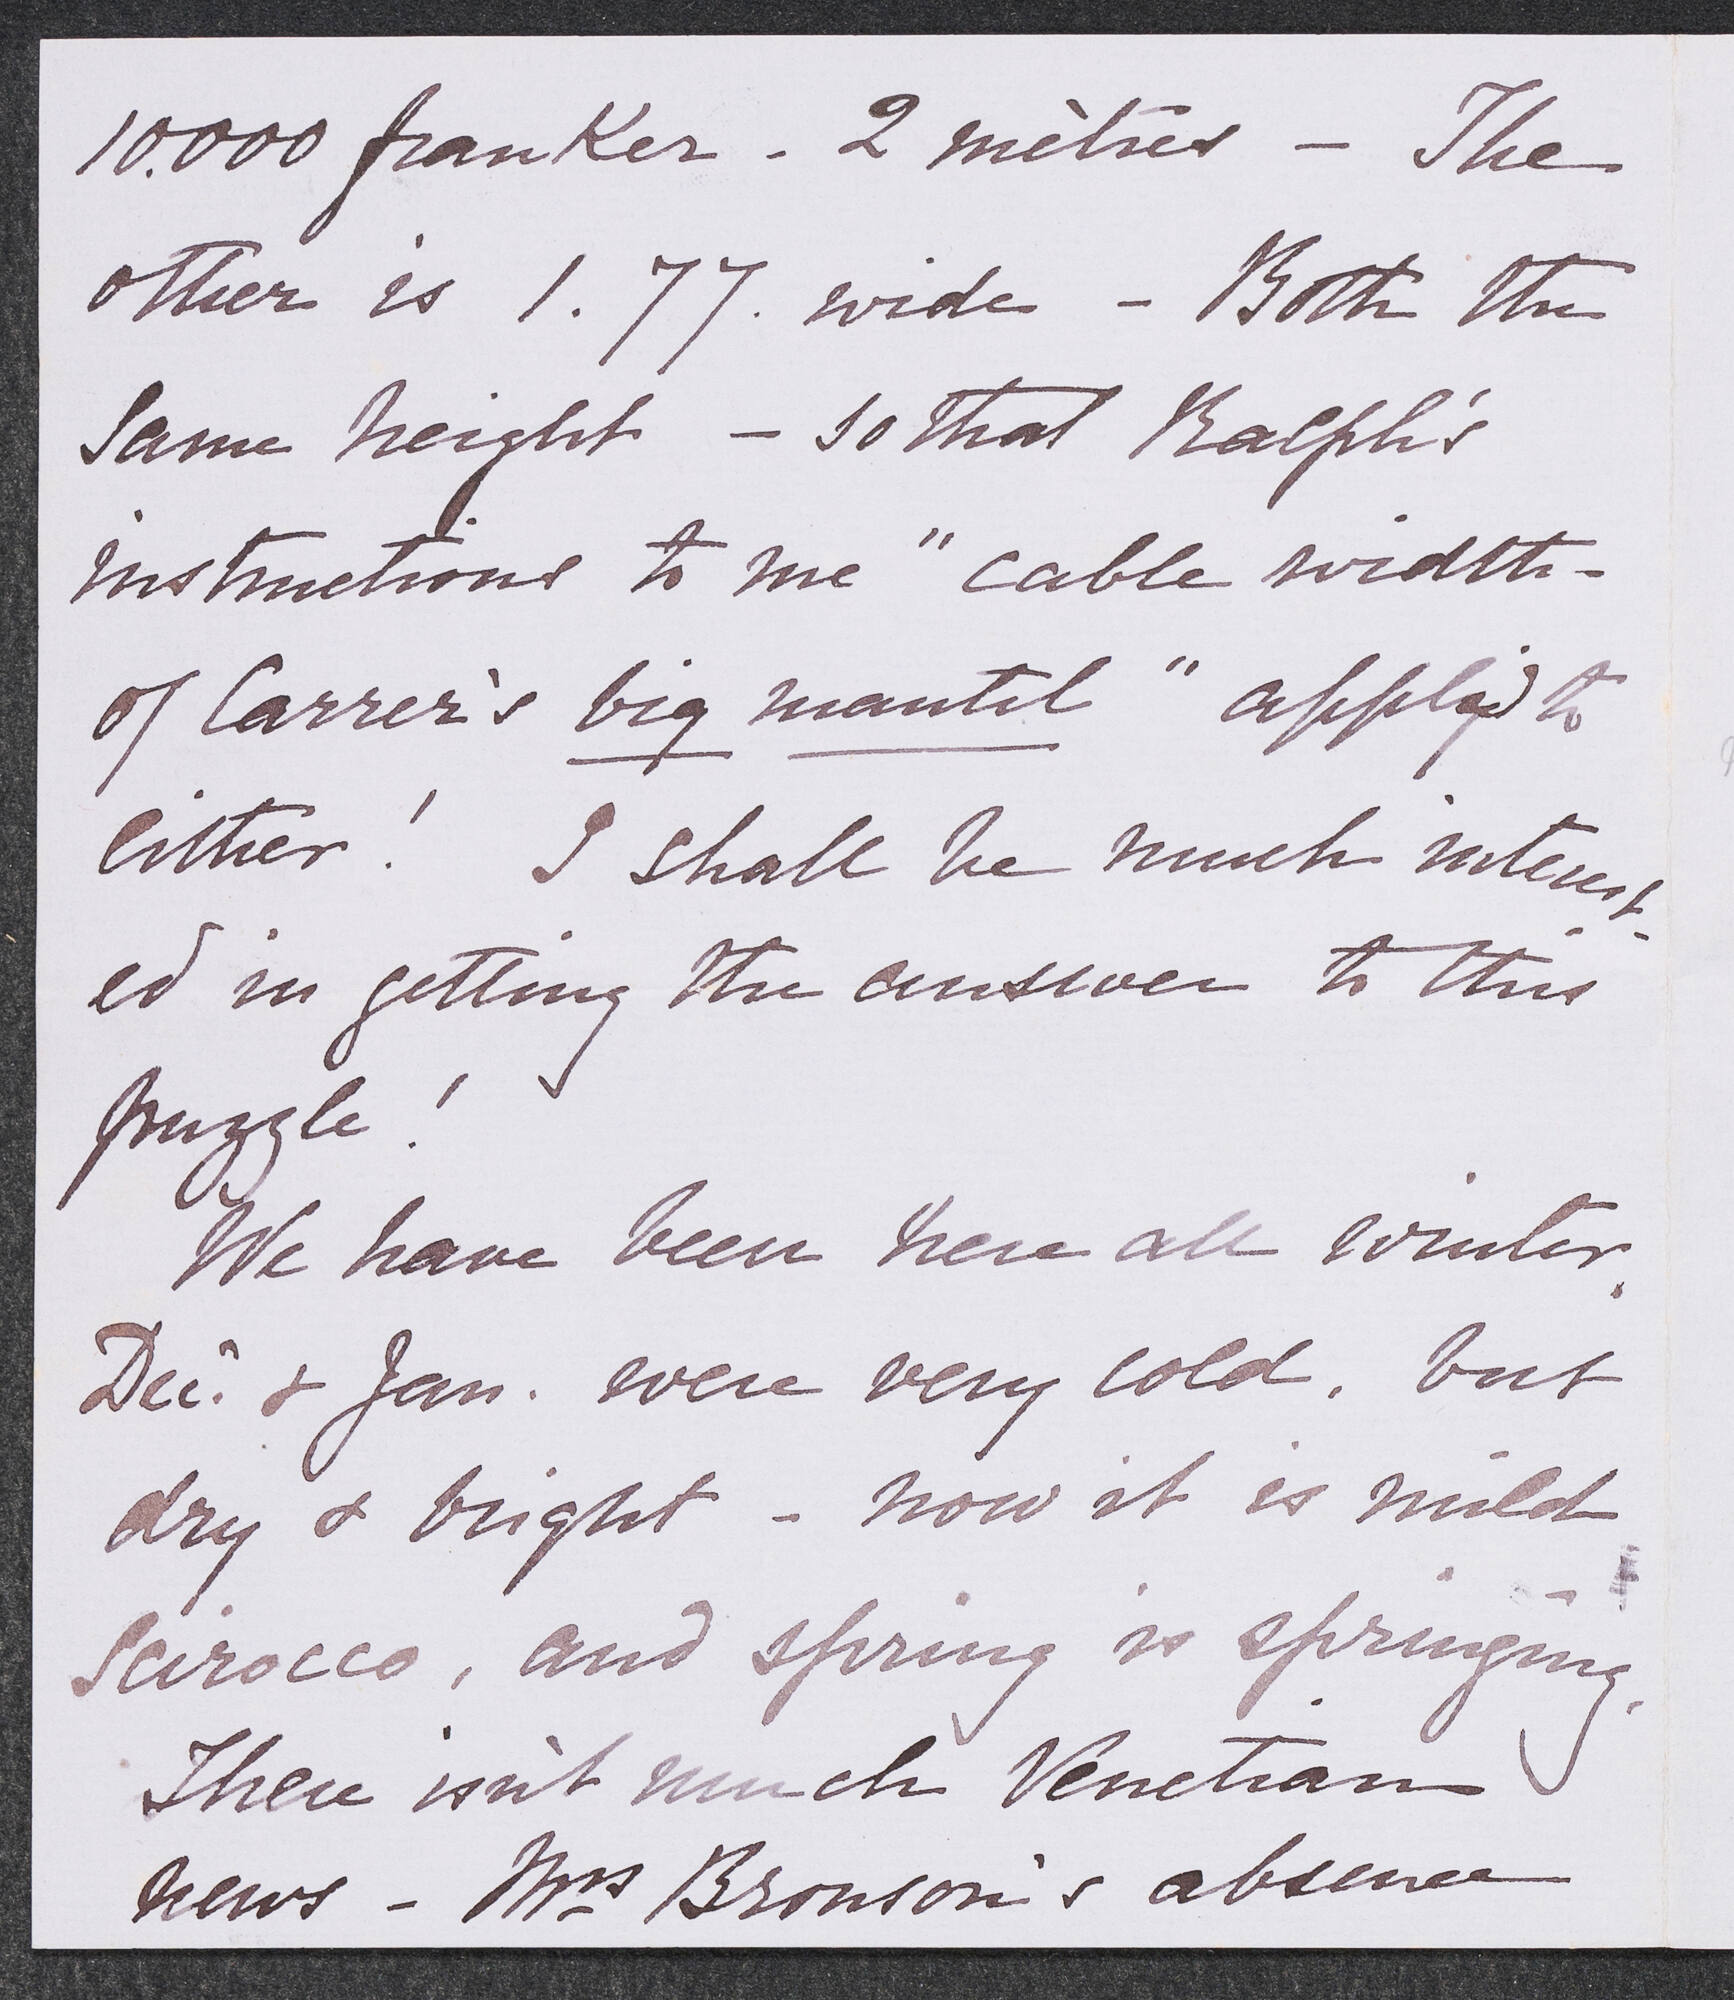 10.000 franker - 2 mètres - The
other is 1.77. wide - Both the
same height - so that Ralph's
instructions to me "cable width-
of Carrer's big mantel" applied to
either! I shall be much interest-
ed in getting the answer to this
puzzle!
We have been here all winter.
Dec. & Jan. were very cold, but
dry & bright - now it is mild
Scirocco, and spring is springing.
There isn't much Venetian
news - Mrs Bronson's absence